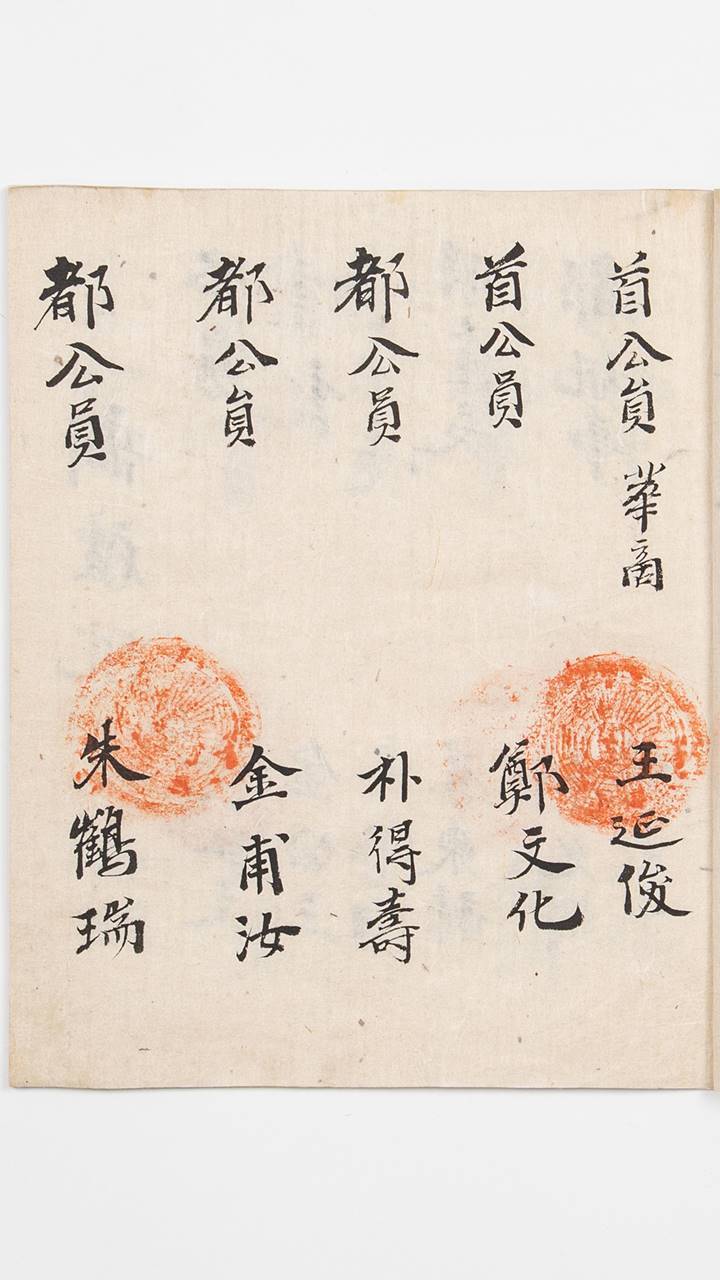 首公員 華商 王延俊
首公員 鄭文化
都公員 朴得壽
都公員 金甫汝
都公員 朱鶴瑞